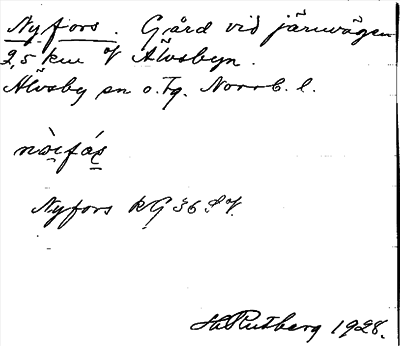 Nyfors. Gård vid järnvägen
2,5 km V Älvsbyn.
Älvsby sn o. Tg. Norrb. l.
Nyfors kG 36
H. Rutberg 1928.